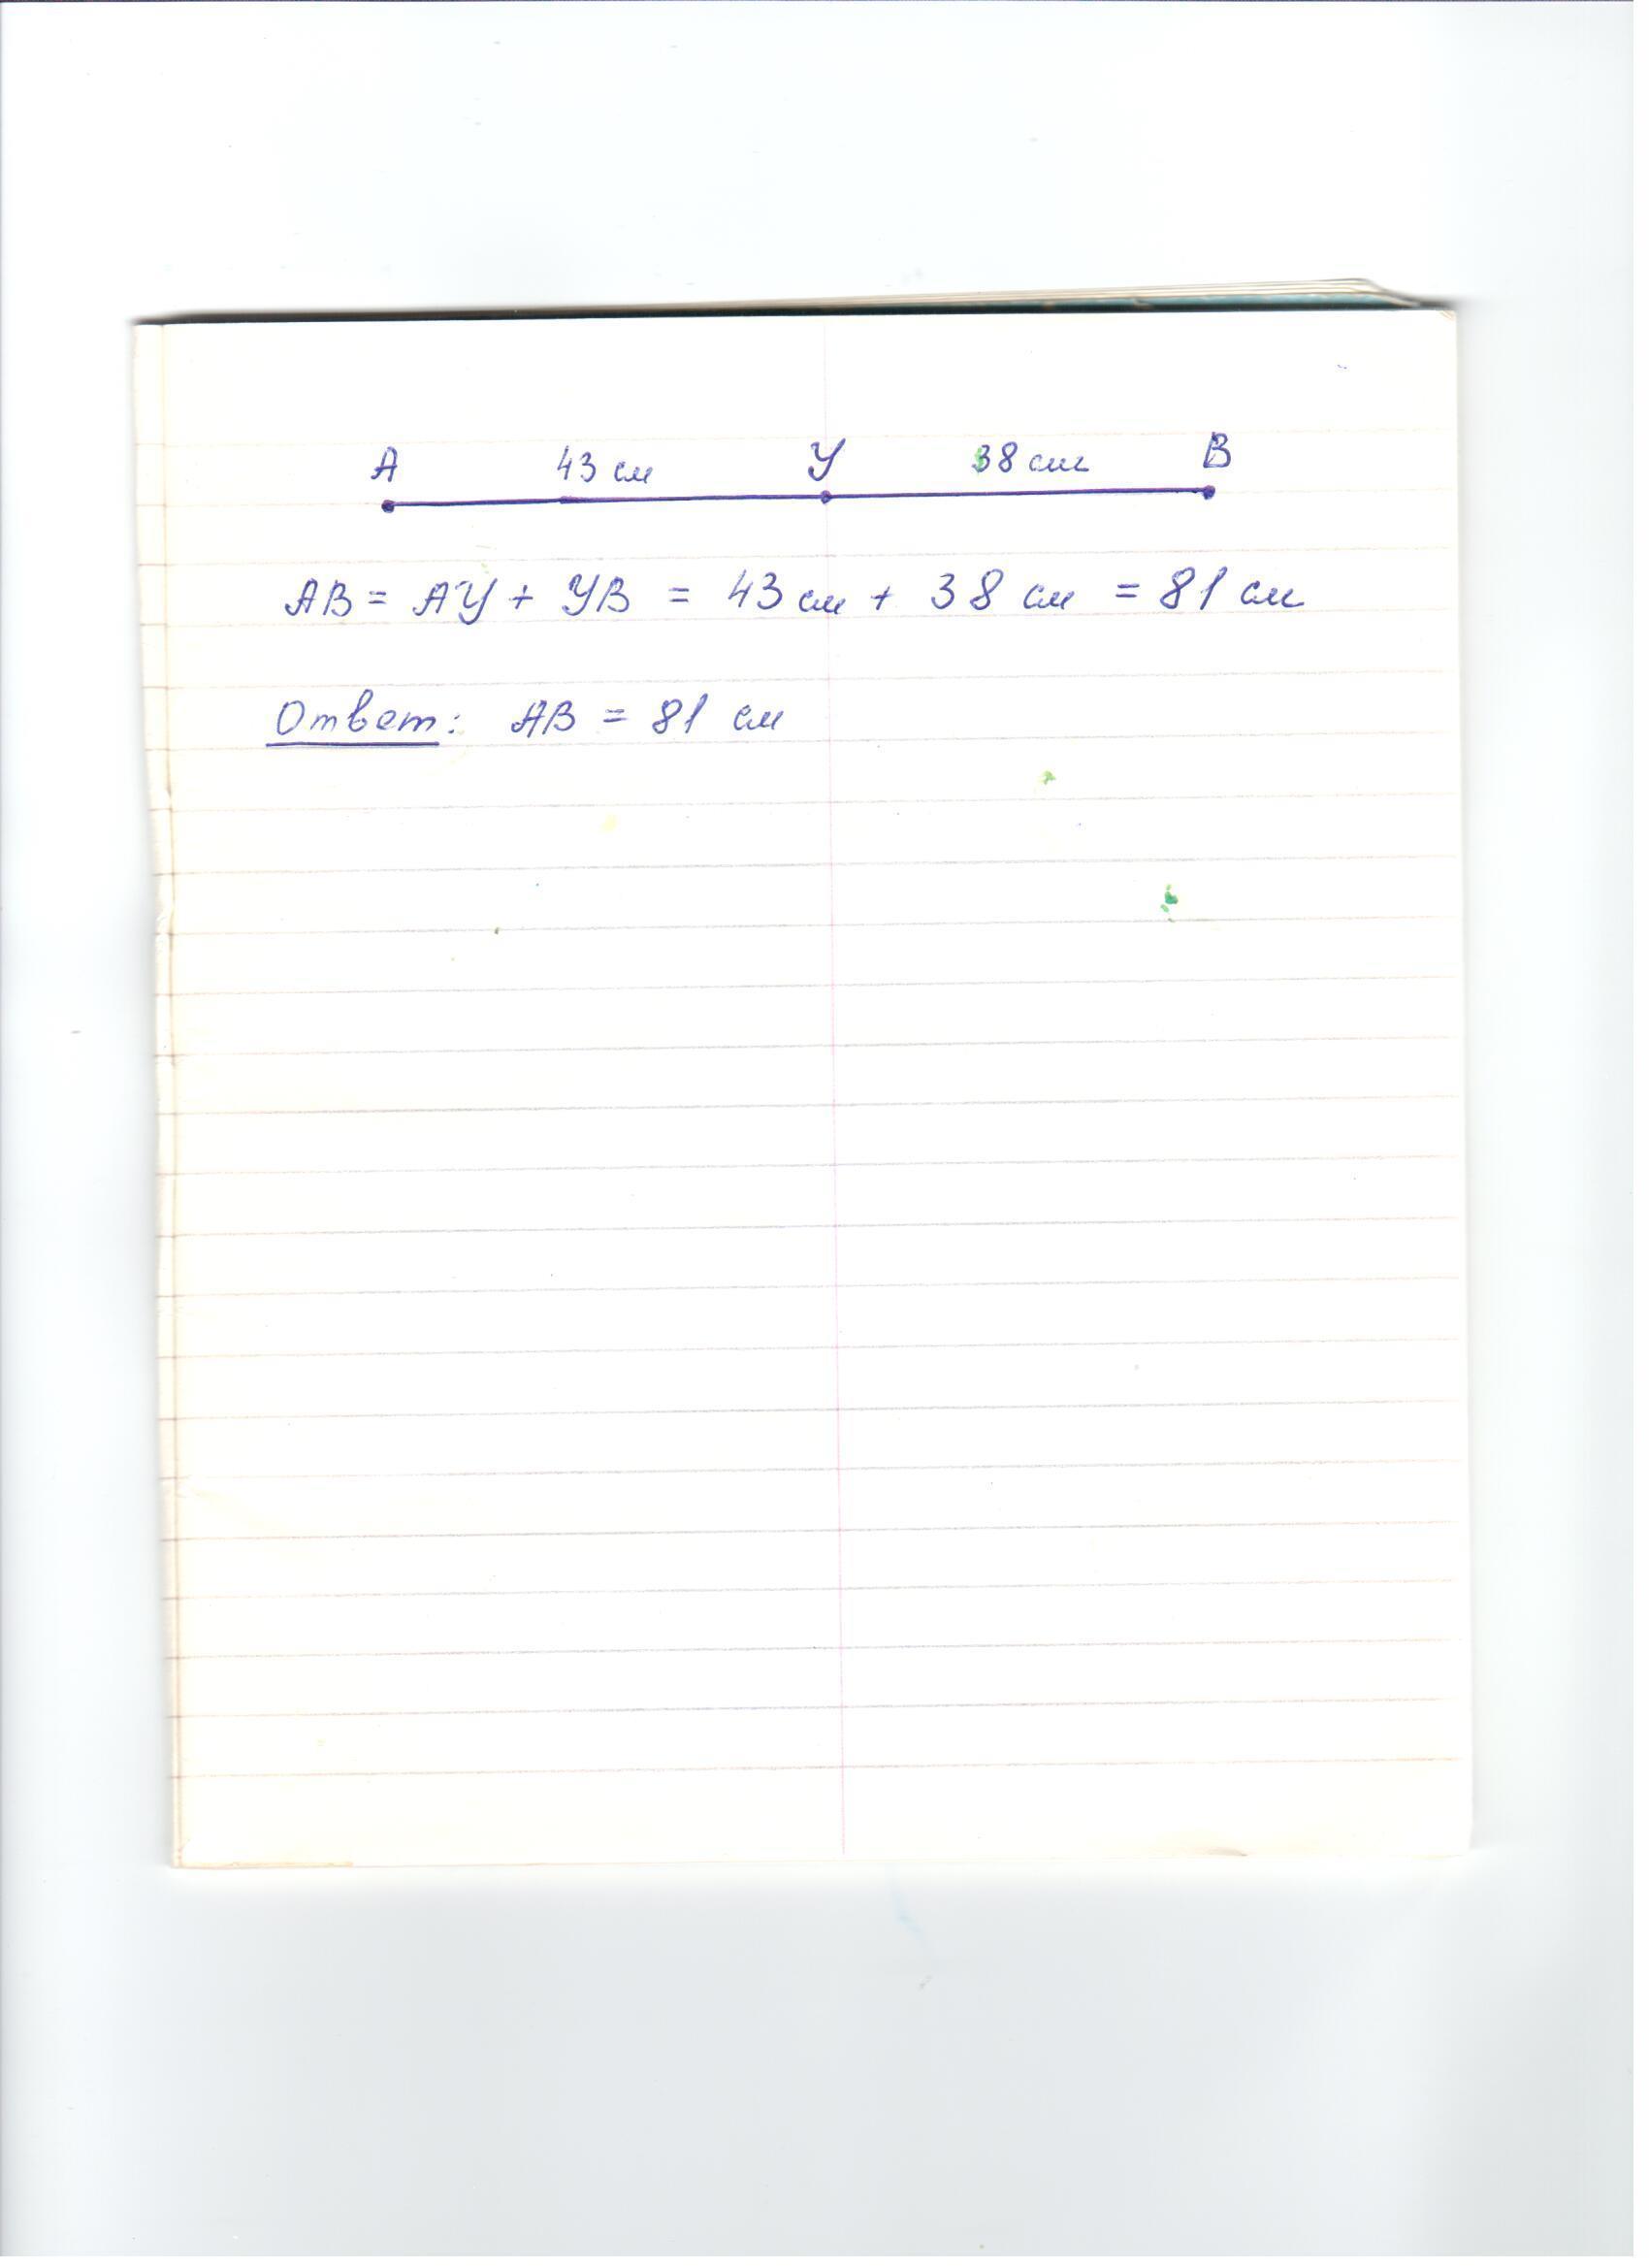 А 43 см У 38 см В
АВ = АУ + УВ = 43 см + 38 см = 81 см
Ответ: АВ = 81 см